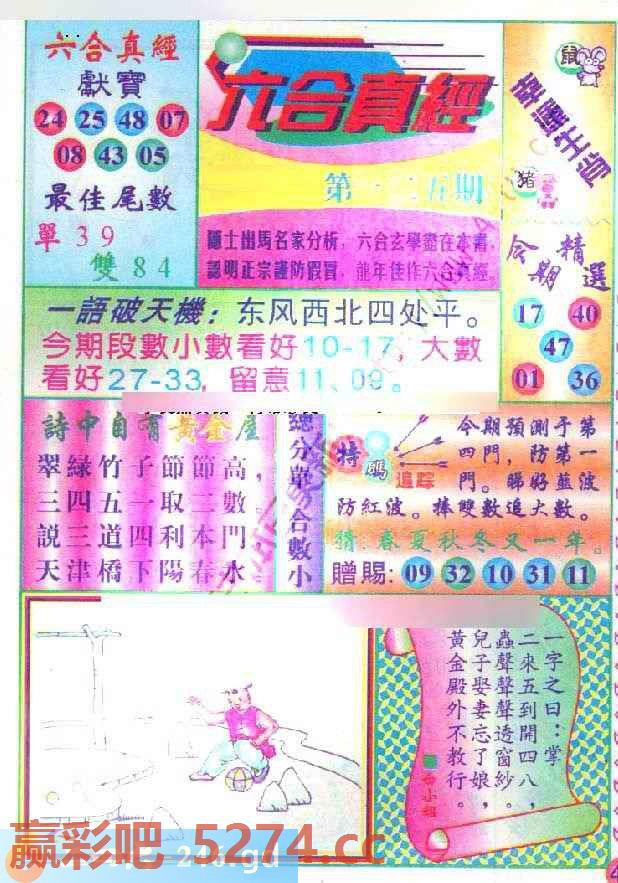 六合真經
獻寶
24 25 48 07
08 43 05
最佳尾數
單39
雙84
六合真經
第一二五期
隱士出馬名家分析，六合玄學盡在本書，
認明正宗謹防假冒，龍年佳作六合真經。
鼠
幸運生肖
豬
今期精選
17 40
47
01 36
一語破天機：东风西北四处平。
今期段數小數看好10-17，大數
看好27-33，留意11、09。
詩中自有黃金屋
翠綠竹子節節高，
三四五一取二數。
説三道四利本門，
天津橋下陽春水。
總分單合數小
特碼追踪
今期預測于第
四門，防第一
門。睇好藍波
防紅波。捧雙數追大數。
猜：春夏秋冬又一年。
贈賜：09 32 10 31 11
一字之曰：掌
二來五到開四八，
蟲聲聲聲透窗紗。
兒子娶妻忘了娘，
黃金殿外不教行。
赢彩吧 5274.cc